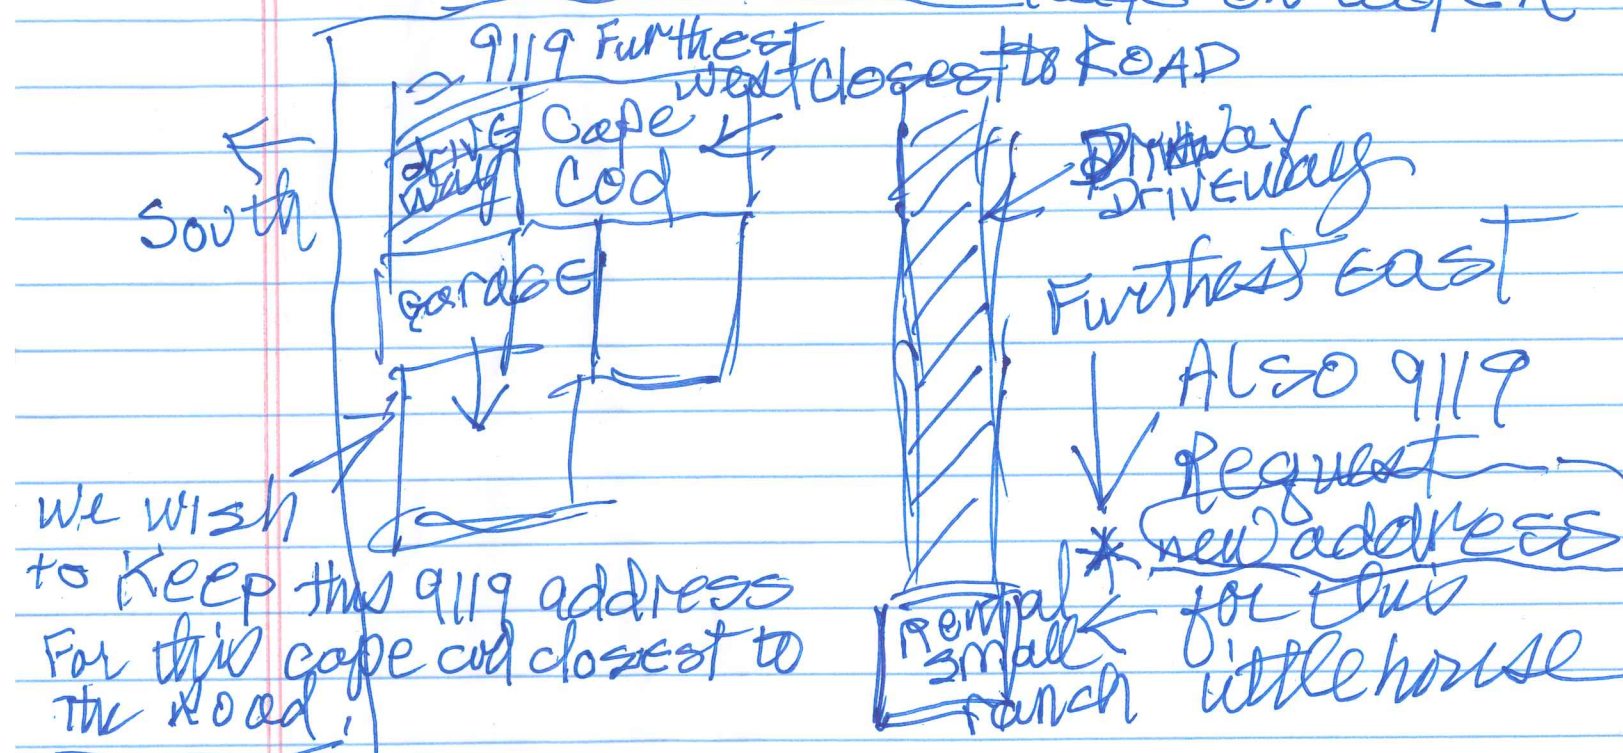 9119 Furthest
west closest to ROAD
Cape
Cod
drive
way
South
garage
Driveway
DRIVEway
Furthest East
Also 9119
Request
new address
for this
little house
Rental
small
ranch
We wish
to Keep this 9119 address
For this cape cod closest to
The Road!